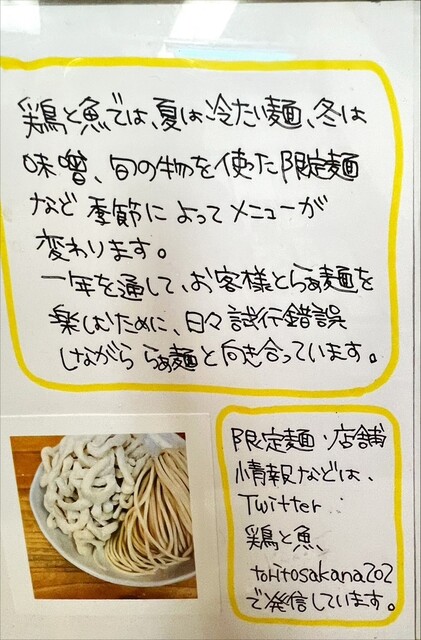 鶏と魚では、夏は冷たい麺、冬は
味噌、旬の物を使った限定麺
など季節によってメニューが
変わります。
一年を通して、お客様とらぁ麺を
楽しむために、日々試行錯誤
しながららぁ麺と向き合っています。
限定麺・店舗
情報などは、
Twitter
鶏と魚、
toritosakana202
で発信しています。